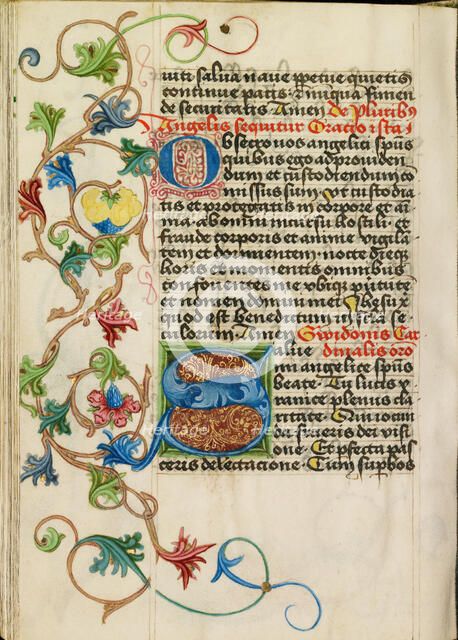 uiti salua naue ppetue quietis
continue patis. Tuiqua finem
de securitatis Amen de Pluribꝰ
Angelis sequitur Oracio ista
Obsecro uos angelici spūs
quibus ego ad prouiden
dum et custodiendum co
missus sum vt custodia
tis et protegatis in corpore et ai
ma ab omni incursu hostili et
fraude corporis et anime vigila
tem et dormientem nocte dieqꝫ
horis et momentis omnibus
fouentes me vbiqꝫ p virtute
et nomen domini mei Jhesu x
quod est benedictum in sela se
culorum Amen Gwidonis Car
Salue dinalis oro
in angelice spūs
beate Tu lucis x
planus cla
ritate
frueris dei visi
one Et pfecta pas
ceris delectacione Tu in supbos
Heritage
Heritage
Heritage
Heritage